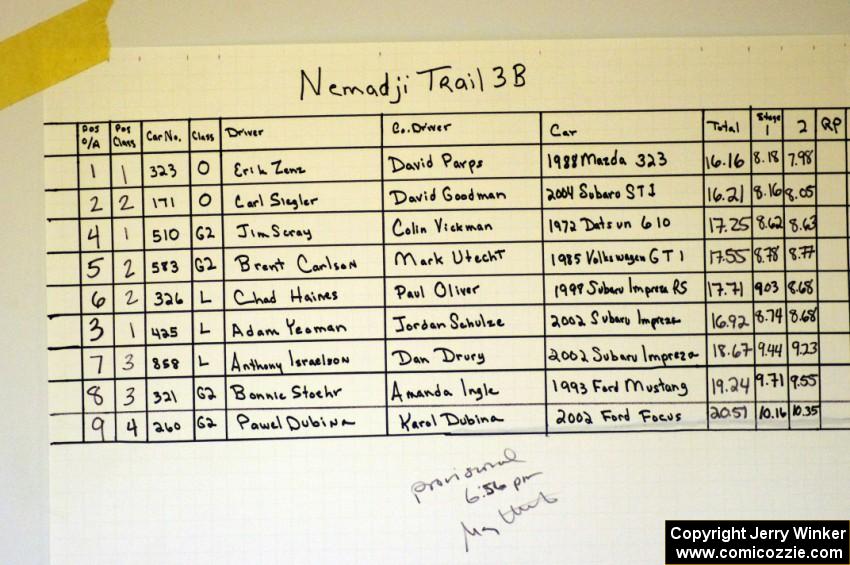 Nemadji Trail 3B
Pos O/A Pos Class Car No. Class Driver Co.Driver Car Total Stage 1 2 QP
1 1 323 O Erik Zenz David Parps 1988 Mazda 323 16.16 8.18 7.98
2 2 171 O Carl Siegler David Goodman 2004 Subaru STI 16.21 8.16 8.05
4 1 510 G2 Jim Scray Colin Vickman 1972 Datsun 610 17.25 8.62 8.63
5 2 583 G2 Brent Carlson Mark Utecht 1985 Volkswagen GTI 17.55 8.78 8.77
6 2 326 L Chad Haines Paul Oliver 1998 Subaru Impreza RS 17.71 9.03 8.68
3 1 425 L Adam Yeoman Jordan Schulze 2002 Subaru Impreza 16.92 8.74 8.68
7 3 858 L Anthony Israelson Dan Drury 2002 Subaru Impreza 18.67 9.44 9.23
8 3 321 G2 Bonnie Stoehr Amanda Ingle 1993 Ford Mustang 19.24 9.71 9.55
9 4 260 G2 Pawel Dubina Karol Dubina 2002 Ford Focus 20.51 10.16 10.35
provisional
6:56 pm
Copyright Jerry Winker
www.comicozzie.com